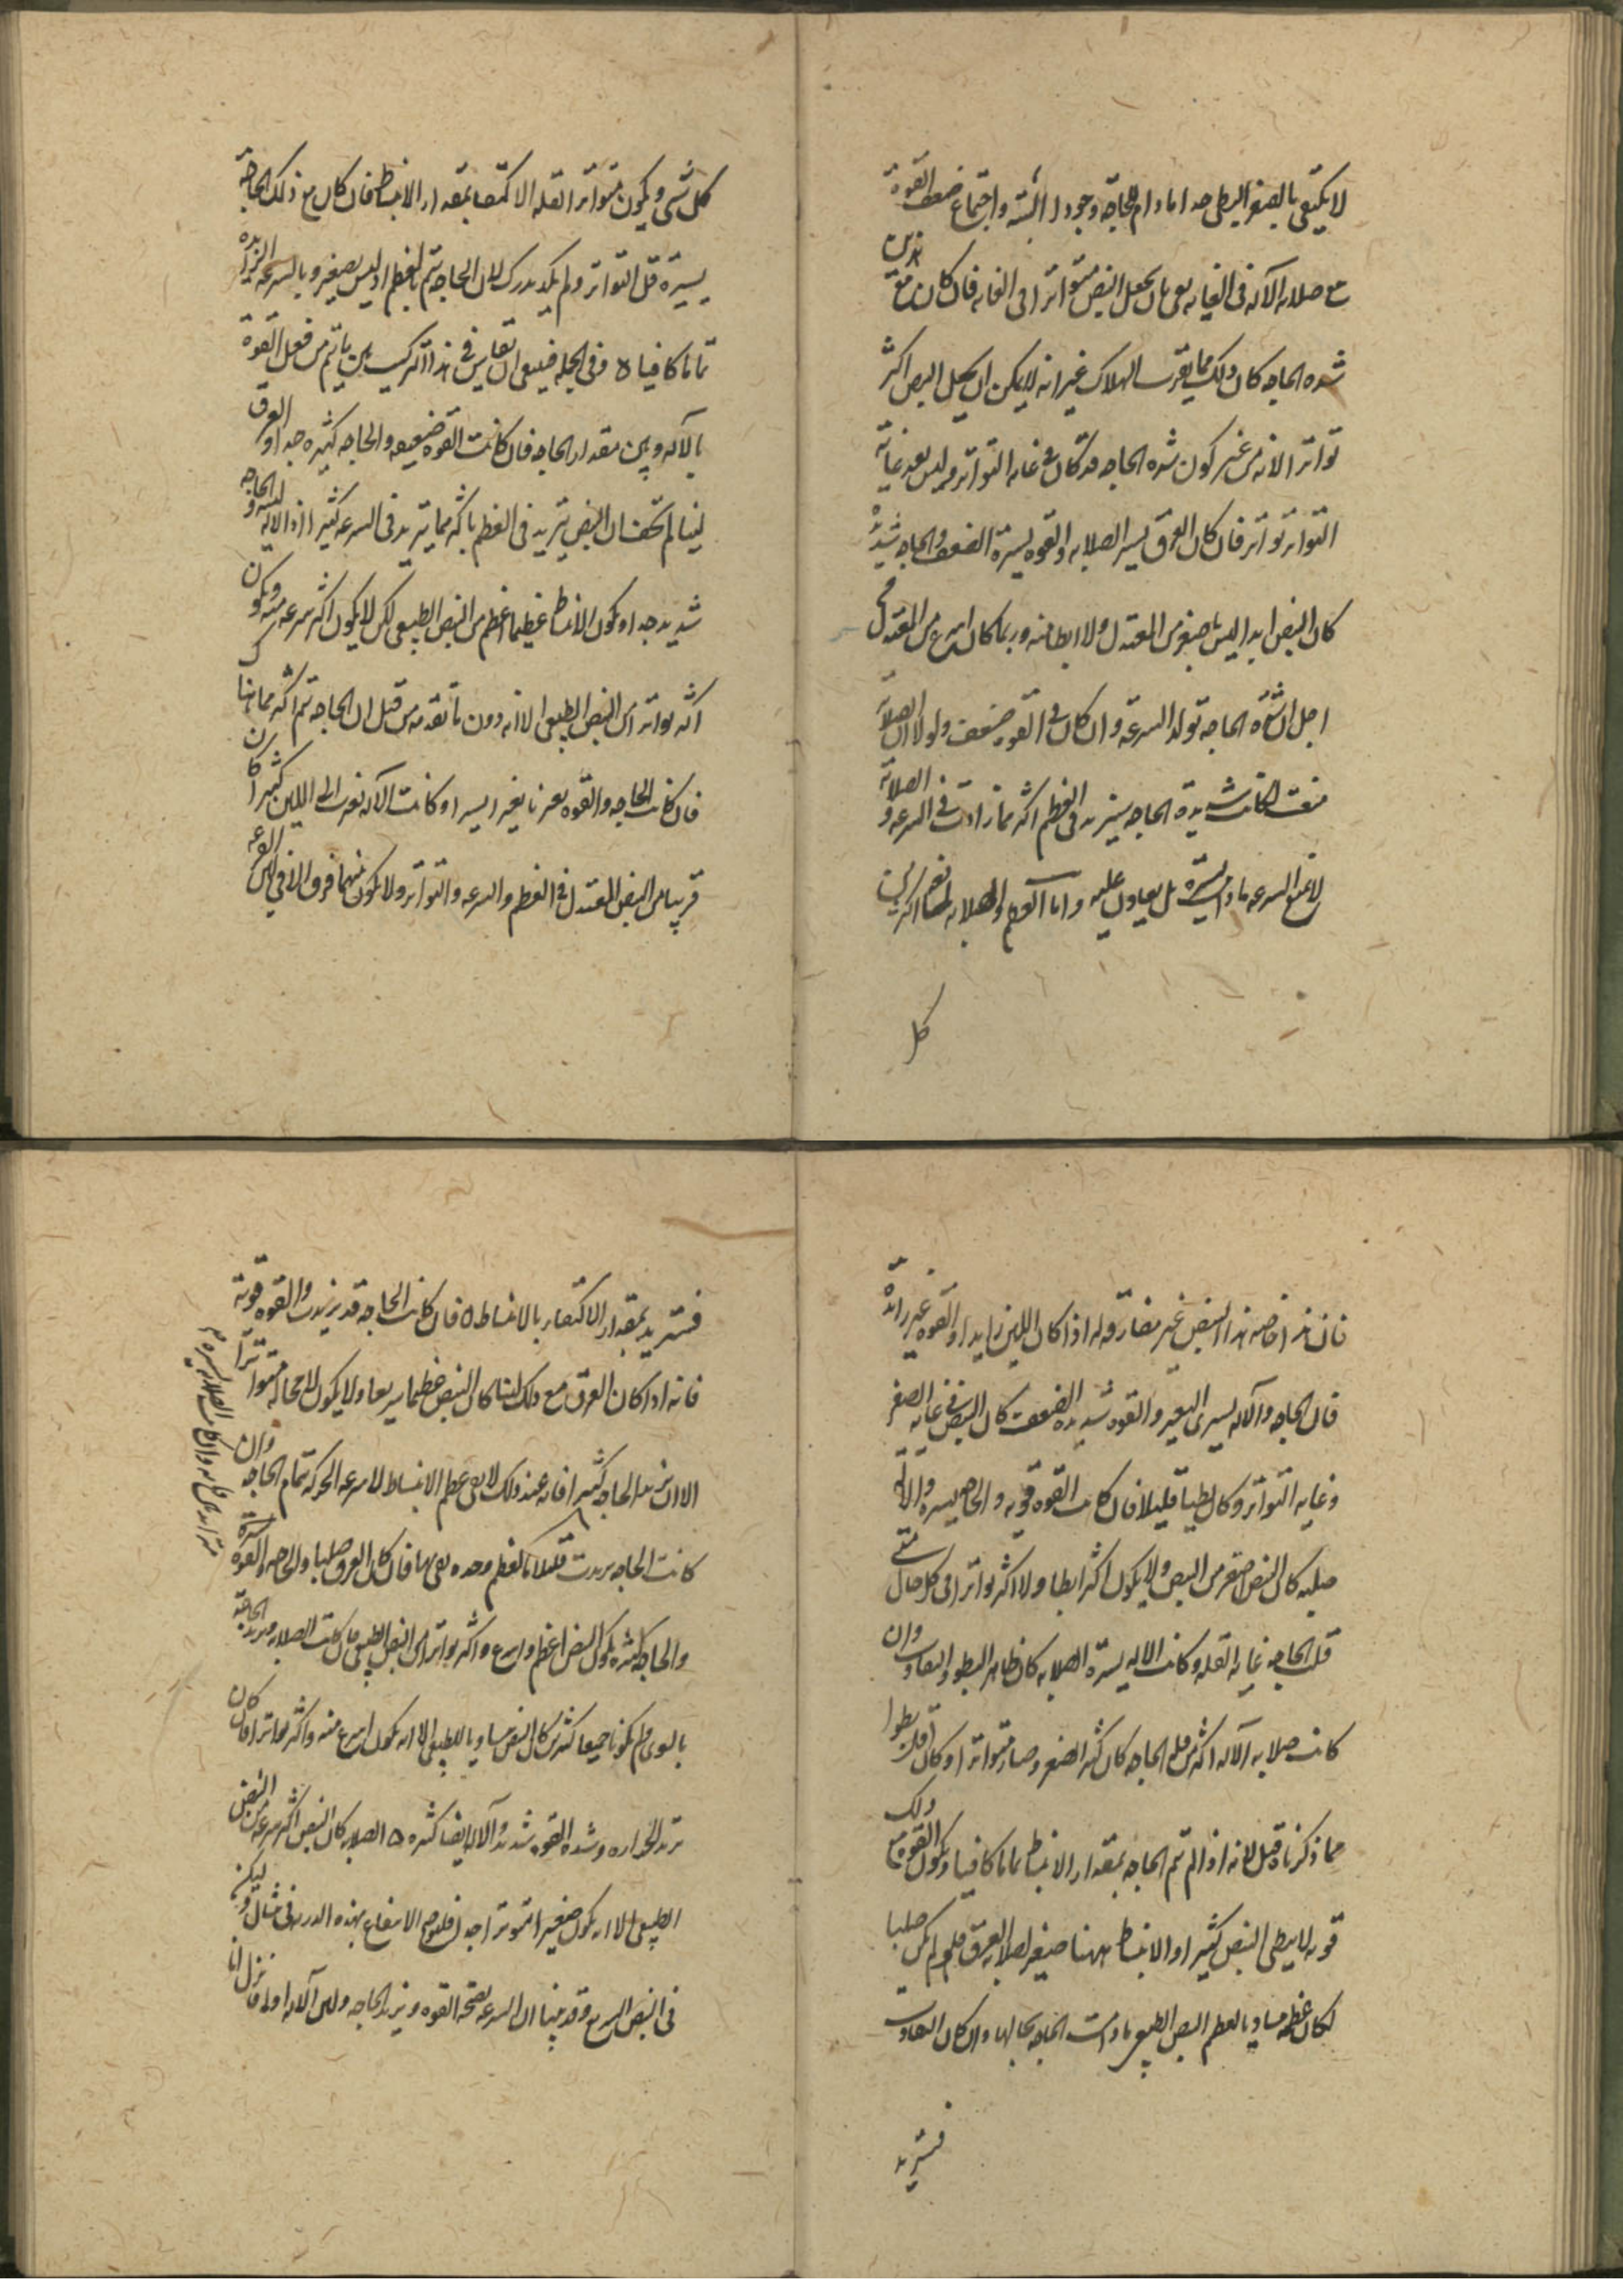 لا يكتفى بالصغر البطى جدا ما دام للحاجة وجودا البتة واجتماع ضعف القوة
مع صلابه الآله فى الغايه يعنى بان يجعل النبض متواترا فى الغايه فان كان مع هذين
شده الحاجه كان ذلك مما يقرب الهلاك غير انه لا يمكن ان يجعل النبض اكثر
تواترا لانه من غير كون شده الحاجه قد كان فى غايه التواتر وليس بعد غاية
التواتر تواتر فان كان العرق يسير الصلابه والقوه يسيرة الضعف والحاجه شديدة
كان النبض ابدا ليس باصغر من المعتدل ولا ابطا منه وربما كان اسرع من المعتدل من
اجل ان شدة الحاجه تولد السرعة وان كان فى القوه ضعف ولولا ان الصلابة
منعت لكانت شديدة الحاجه ستزيد فى العظم اكثر مما زادت فى السرعه و الصلابة
لا تمنع السرعه ما دامت يسيرة بل يعاون عليه واما
كل
كل شى ويكون متواترا لقله الاكتفا بمقدار الانبساط فان كان مع ذلك الحاجة
يسيرة قل التواتر ولم يكد يدرك لان الحاجه تتم بالعظم اذ ليس بصغير وبالسرعه الزايده
تماما كافيا ه وفى الجمله فينبغى ان تقايس فى هذا التركيب بين ما يتم من فعل القوة
بالآله وبين مقدار الحاجه فان كانت القوه ضعيفه والحاجه كثيره جدا والعرق
لينا لم تخف ان النبض يتزيد فى العظم باكثر مما يتزيد فى السرعه كثيرا اذ الاله لينه والحاجه
شديد جدا ويكون الانبساط عظيما اعظم من النبض الطبيعى لكن لا يكون اكثر سرعه منه ويكون
اكثر تواترا من النبض الطبيعى الا انه دون ما تقدمه من قبل ان الحاجه تتم اكثر مما هنا
فان كانت الحاجه والقوه تغيرتا تغيرا يسيرا وكانت الآله تغيرت الى اللين كثيرا كان
قريبا من النبض المعتدل فى العظم والسرعه والتواتر ولا يكون بينهما فرق الا فى لين
فان هذا خاصه هذا النبض غير مفارق له اذا كان اللين زايدا والقوه غير زائدة
فان الحاجه والآله يسيرى التغير والقوه شديده الضعف كان النبض فى غايه الصغر
وغايه التواتر وكان بطيا قليلا فان كانت القوه قويه والحاجه يسيره والالة
صلبه كان النبض اصغر من النبض ولا يكون اكثر ابطا ولا اكثر تواترا فى كل حال متى
قلت الحاجه غايه القله وكانت الاله يسيرة الصلابه كان ظاهر البطو والتفاوت وان
كانت صلابه الآله اكثر من قله الحاجه كان كثير الصغر وصار متواترا وكان اقل بطوا
مما ذكرناه قبل لانه اذا لم تتم الحاجه بمقدار الانبساط تماما كافيا ويكون القوه مع ذلك
قويه لا يبطى النبض كثيرا والانبساط ههنا صغير لصلابه العرق فلو لم يكن صلبا
لكان عظمه مساويا لعظم النبض الطبيعى ما دامت الحاجه بحالها وان كان التفاوت
فستزيد
فستزيد بمقدار الاكتفاء بالانبساط ه فان كانت الحاجه قد تزيدت والقوه قوية
فانه اذا كان العرق مع ذلك لينا كان النبض عظيما سريعا ولا يكون لا محاله متواترا
الا ان تزيد الحاجه كثيرا فانه عند ذلك لا يفى عظم الانبساط لا سرعه الحركه تمام الحاجه وان
كانت الحاجه تزيدت قليلا فالعظم وحده يفى بها فان كان العرق صلبا والحاجه والقوه
والحاجه كثيره يكون النبض اعظم واسرع واكثر تواترا من النبض الطبيعى فان كانت الصلابه وتزيد الحاجة
بالسوى ولم يكونا جميعا كثيرين كان النبض مساويا للطبيعى الا انه يكون اسرع منه واكثر تواترا فان كان
تزيد الحراره وشده القوه شديدا والآله ايضا كثيره ه الصلابه كان النبض اكثر سرعه من النبض
الطبيعى الا انه يكون صغيرا متواترا جدا فلنوضح الانتفاع بهذه الدربه فى مثال وليكن
فى النبض السريع وقد بينا ان السرعه بصحة القوه وتزيد الحاجه ولين الآله اولا فانزل انا